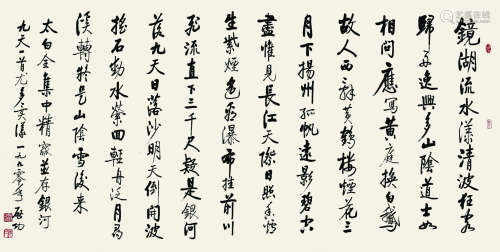 鏡湖流水漾清波狂客
歸舟逸興多山陰道士如
相問應寫黃庭換白鵝
故人西辭黃鶴樓煙花三
月下揚州孤帆遠影碧空
盡惟見長江天際日照香爐
生紫煙遙看瀑布挂前川
飛流直下三千尺疑是銀河
落九天日落沙明天倒開波
搖石動水縈回輕舟泛月尋
溪轉疑是山陰雪後來
太白全集中精並存銀河
九天一首尤多一九八零年 啟功